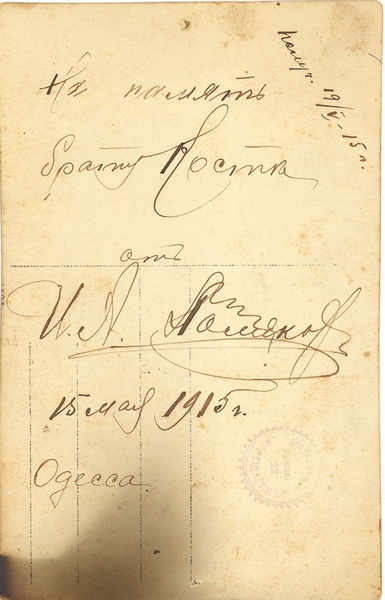 получ. 19/V-15 г.
На память
брату Костѣ
отъ
И. А. Поляковъ
15 мая 1915 г.
Одесса.